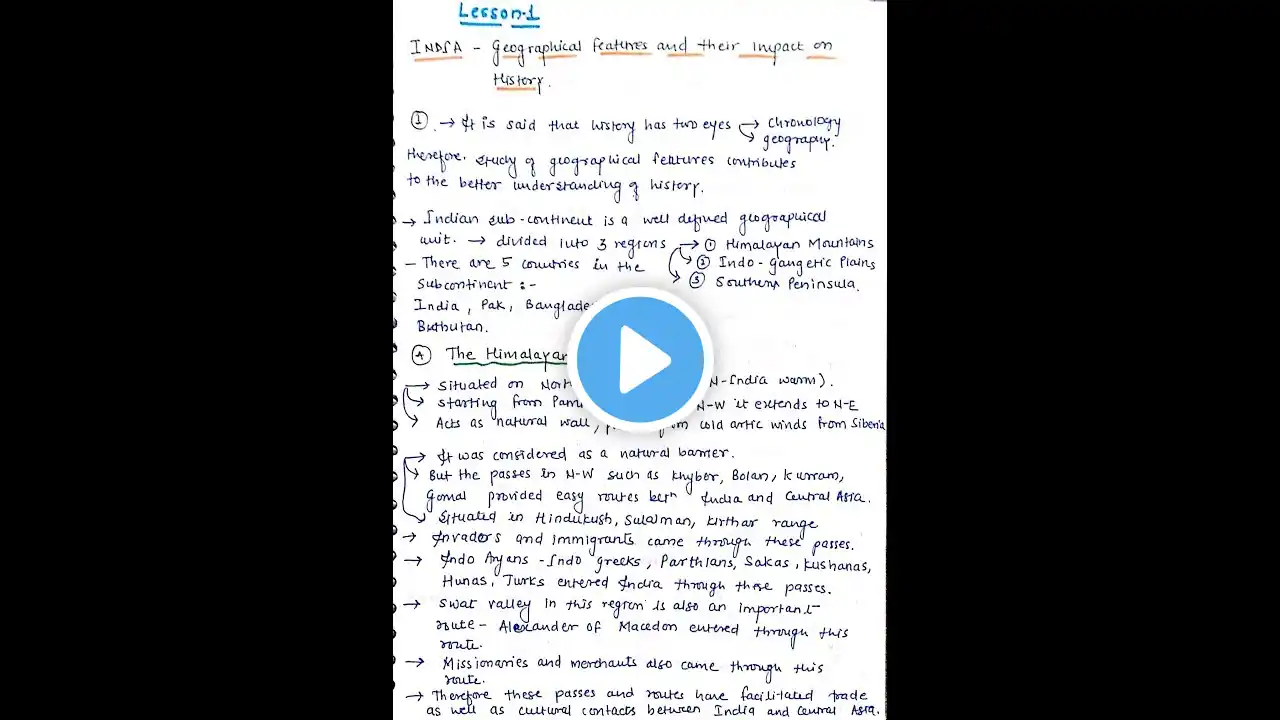 Lesson-1
INDIA - Geographical features and their impact on
History.
① → It is said that history has two eyes → chronology
→ geography.
therefore. study of geographical features contributes
to the better understanding of history.
→ Indian sub-continent is a well defined geographical
unit. → divided into 3 regions → ① Himalayan Mountains
② Indo-Gangetic Plains
③ Southern Peninsula.
- There are 5 countries in the
subcontinent :-
India, Pak, Banglade
Buthutan.
Ⓐ The Himalayan
→ Situated on Nort N-India warm).
→ starting from Pam N-W it extends to N-E
→ Acts as natural wall, cold artic winds from Siberia
→ It was considered as a natural barrier.
→ But the passes in N-W such as Khyber, Bolan, Kurram,
Gomal provided easy routes betn India and Central Asia.
→ Situated in Hindukush, Sulaiman, Kirthar range
→ Invaders and immigrants came through these passes.
→ Indo Aryans - Indo greeks, Parthians, Sakas, Kushanas,
Hunas, Turks entered India through these passes.
→ Swat valley in this region is also an important
route - Alexander of Macedon entered through this
route.
→ Missionaries and merchants also came through this
route.
→ Therefore these passes and routes have facilitated trade
as well as cultural contacts between India and Central Asia.